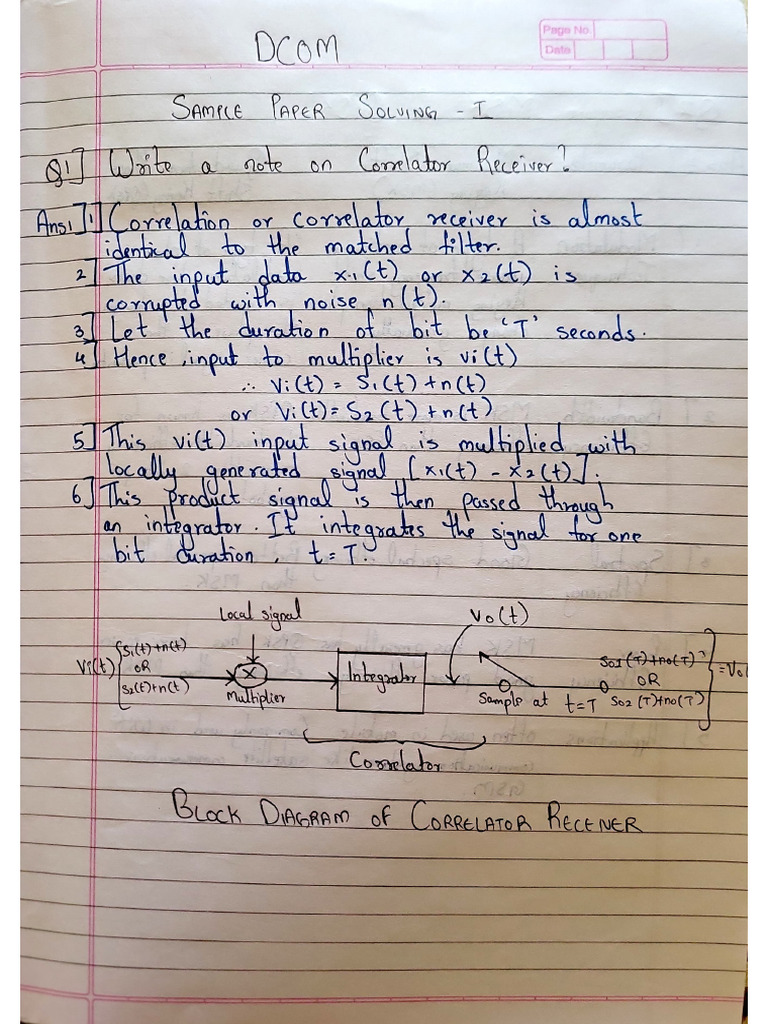 DCOM
Page No.
Date
SAMPLE PAPER SOLVING - I
Q1] Write a note on Correlator Receiver?
Ans1] 1] Correlation or correlator receiver is almost
identical to the matched filter.
2] The input data x1(t) or x2(t) is
corrupted with noise n(t).
3] Let the duration of bit be 'T' seconds.
4] Hence, input to multiplier is vi(t)
∴ Vi(t) = S1(t) + n(t)
or Vi(t) = S2(t) + n(t)
5] This vi(t) input signal is multiplied with
locally generated signal [x1(t) - x2(t)].
6] This product signal is then passed through
an integrator. It integrates the signal for one
bit duration, t=T.
Local signal
Vo(t)
Vi(t) { S1(t)+n(t)
OR
S2(t)+n(t)
X
Multiplier
Integrator
Sample at t=T
So1(T)+no(T)
OR
So2(T)+no(T)
} = Vo(
Correlator
BLOCK DIAGRAM OF CORRELATOR RECEIVER